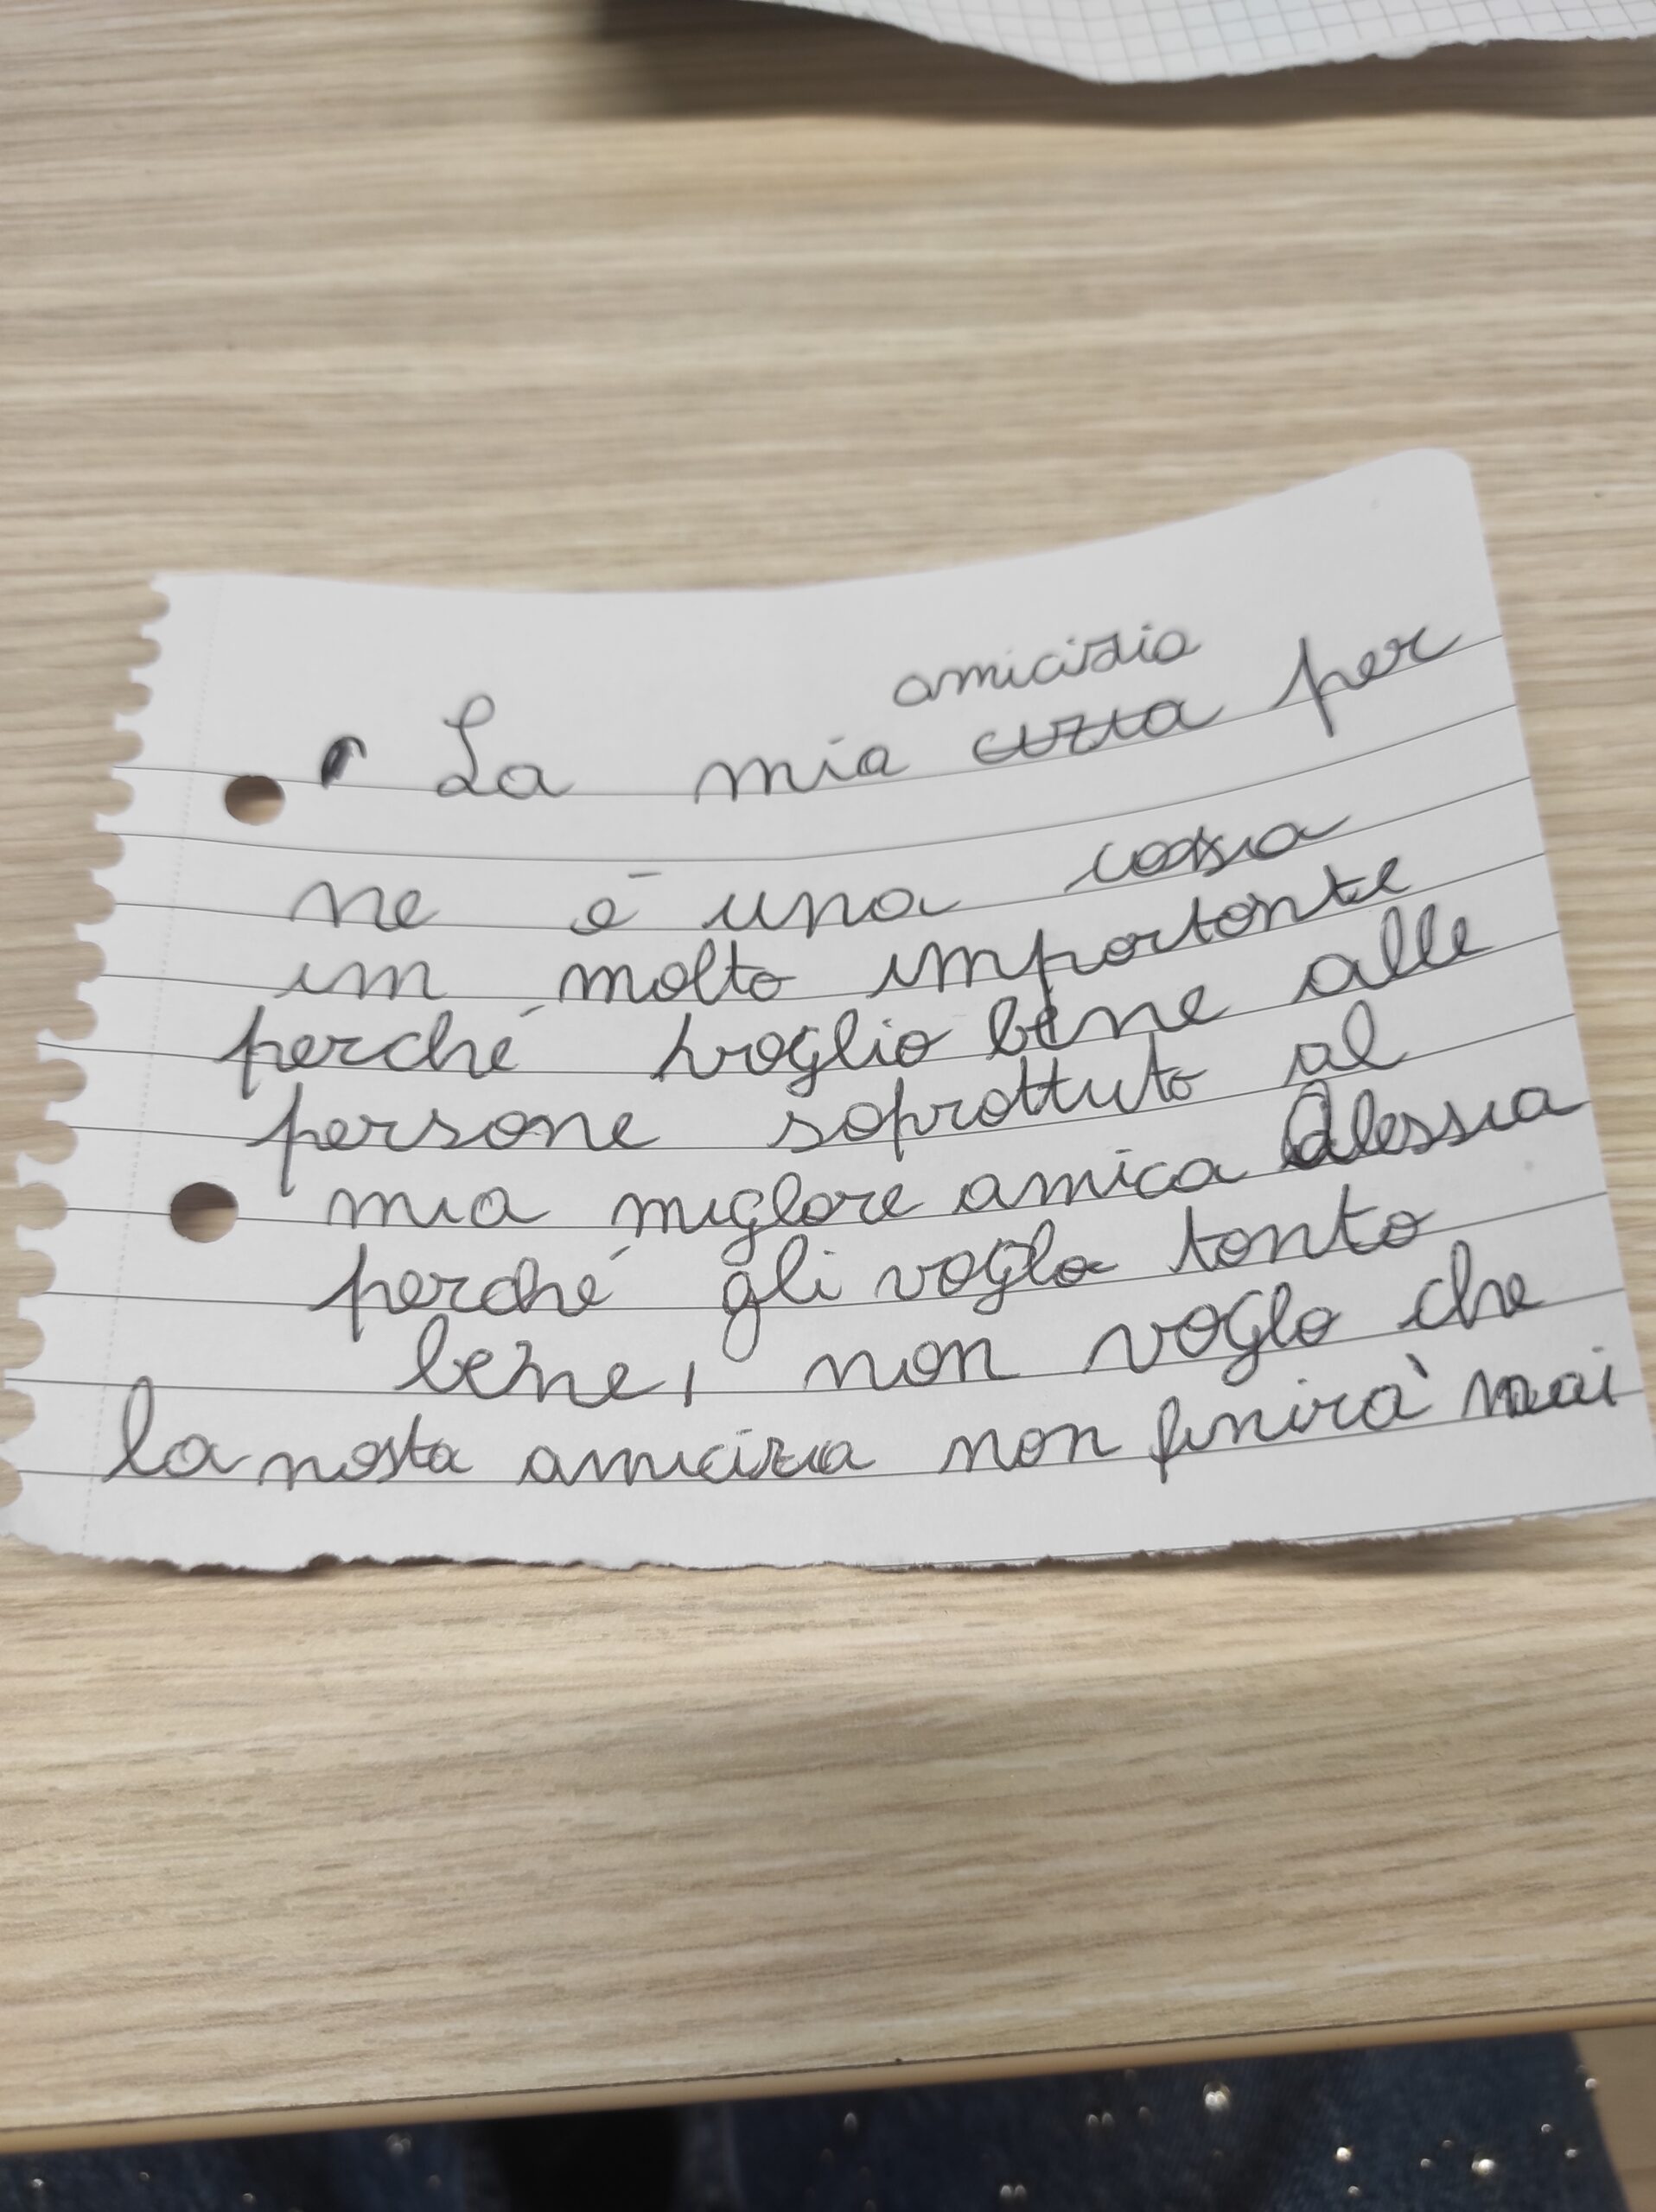 amicizia
La mia per
ne è una cossa
im molto importante
perché voglio bene alle
persone soprottuto al
mia miglore amica Alessia
perché gli voglo tanto
bene, non voglo che
la nosta amicizia non finirà mai